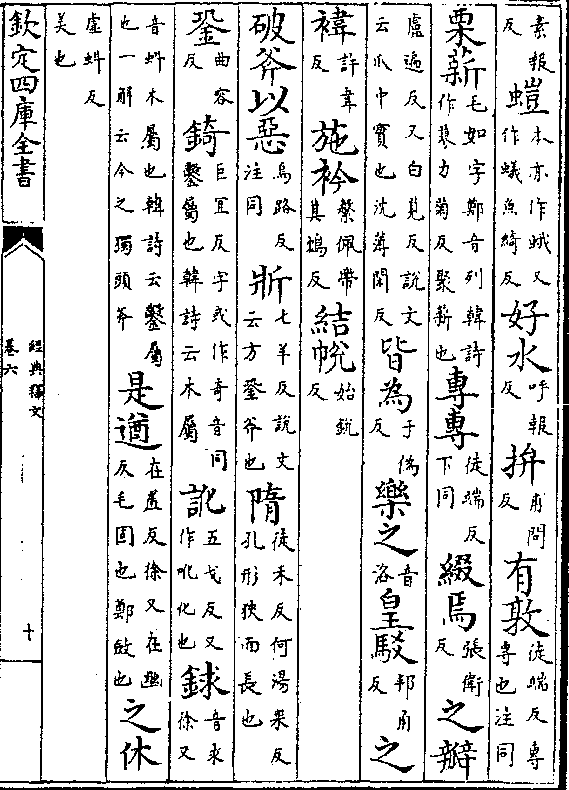 素報反螘本亦作蛾又作蟻魚綺反好水呼報反拚甫問反有敦徒端反專專也注同
栗薪毛如字鄭音列韓詩作力菊反聚薪也專專徒端反下同綴焉張衛反之瓣
盧遍反又白莧反說文云瓜中實也沈薄閑反皆為于偽反樂之音洛皇駁邦角反之
褘許韋反施衿繫佩帶其鴆反結帨始銳反
破斧以惡烏路反注同斨七羊反說文云方銎斧也隋徒禾反何湯果反孔形狹而長也
銎曲容反錡巨宜反字或作奇音同鑿屬也韓詩云木屬訛五戈反又作吪化也銶音求徐又
音蚪木屬也韓詩云鑿屬也一解云今之獨頭斧是遒在羞反徐又在幽反毛固也鄭斂也之休
虛蚪反美也
欽定四庫全書
經典釋文
卷六
十